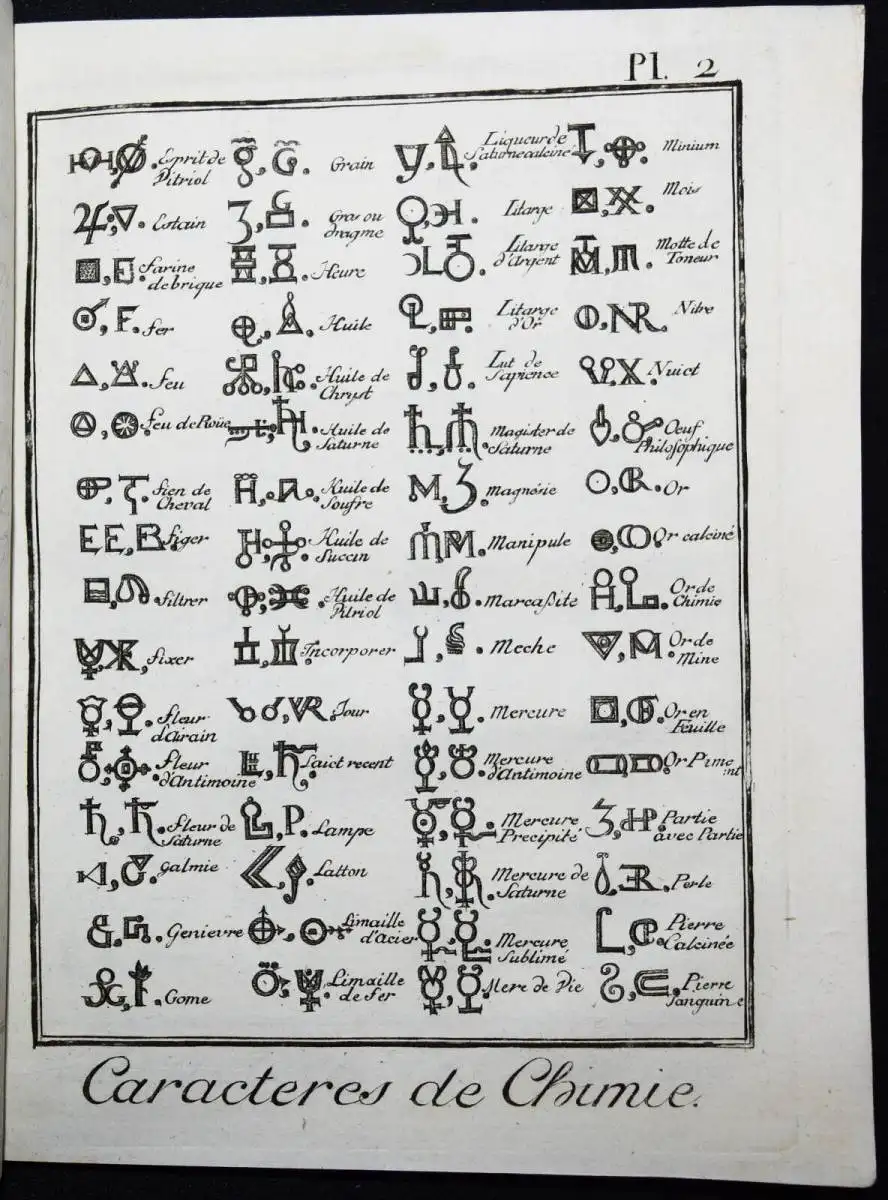 Pl. 2
Esprit de
Vitriol
Estain
Farine
de brique
fer
feu
feu de Roüe
fien de
Cheval
figer
filtrer
fixer
fleur
d'airain
fleur
d'Antimoine
fleur de
Saturne
galmie
Genievre
Gome
Grain
Gros ou
dragme
Heure
Huile
Huile de
Chryst
Huile de
Saturne
Huile de
Soufre
Huile de
Succin
Huile de
Vitriol
Incorporer
Jour
Laict recent
Lampe
Latton
Limaille
d'acier
Limaille
de fer
Liqueur de
Saturne calciné
Litarge
Litarge
d'Argent
Litarge
d'Or
Lut de
Sapience
Magister de
Saturne
Magnésie
Manipule
Marcaßite
Meche
Mercure
Mercure
d'Antimoine
Mercure
Precipité
Mercure de
Saturne
Mercure
Sublimé
Mere de Vie
Minium
Mois
Motte de
Toneur
Nitre
Nuict
Œuf
Philosophique
Or
Or calciné
Or de
Chimie
Or de
Mine
Or en
Feuille
Or Piment
Partie
avec Partie
Perle
Pierre
Calcinée
Pierre
Sanguine
Caracteres de Chimie.